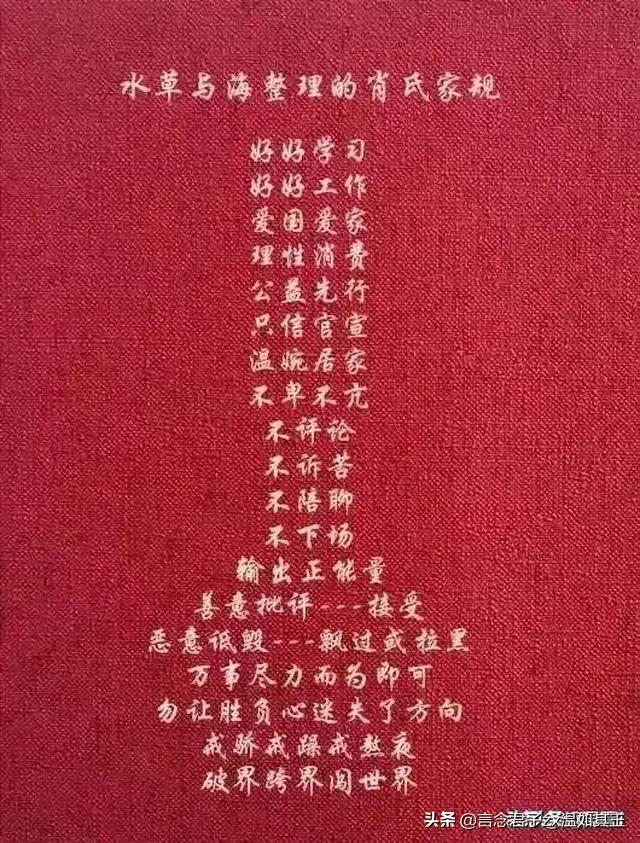 水草与海整理的肖氏家规
好好学习
好好工作
爱国爱家
理性消费
公益先行
只信官宣
温婉居家
不卑不亢
不评论
不诉苦
不陪聊
不下场
输出正能量
善意批评---接受
恶意诋毁---飘过或拉黑
万事尽力而为即可
勿让胜负心迷失了方向
戒骄戒躁戒熬夜
破界跨界闯世界
头条 @言念君子温如其玉